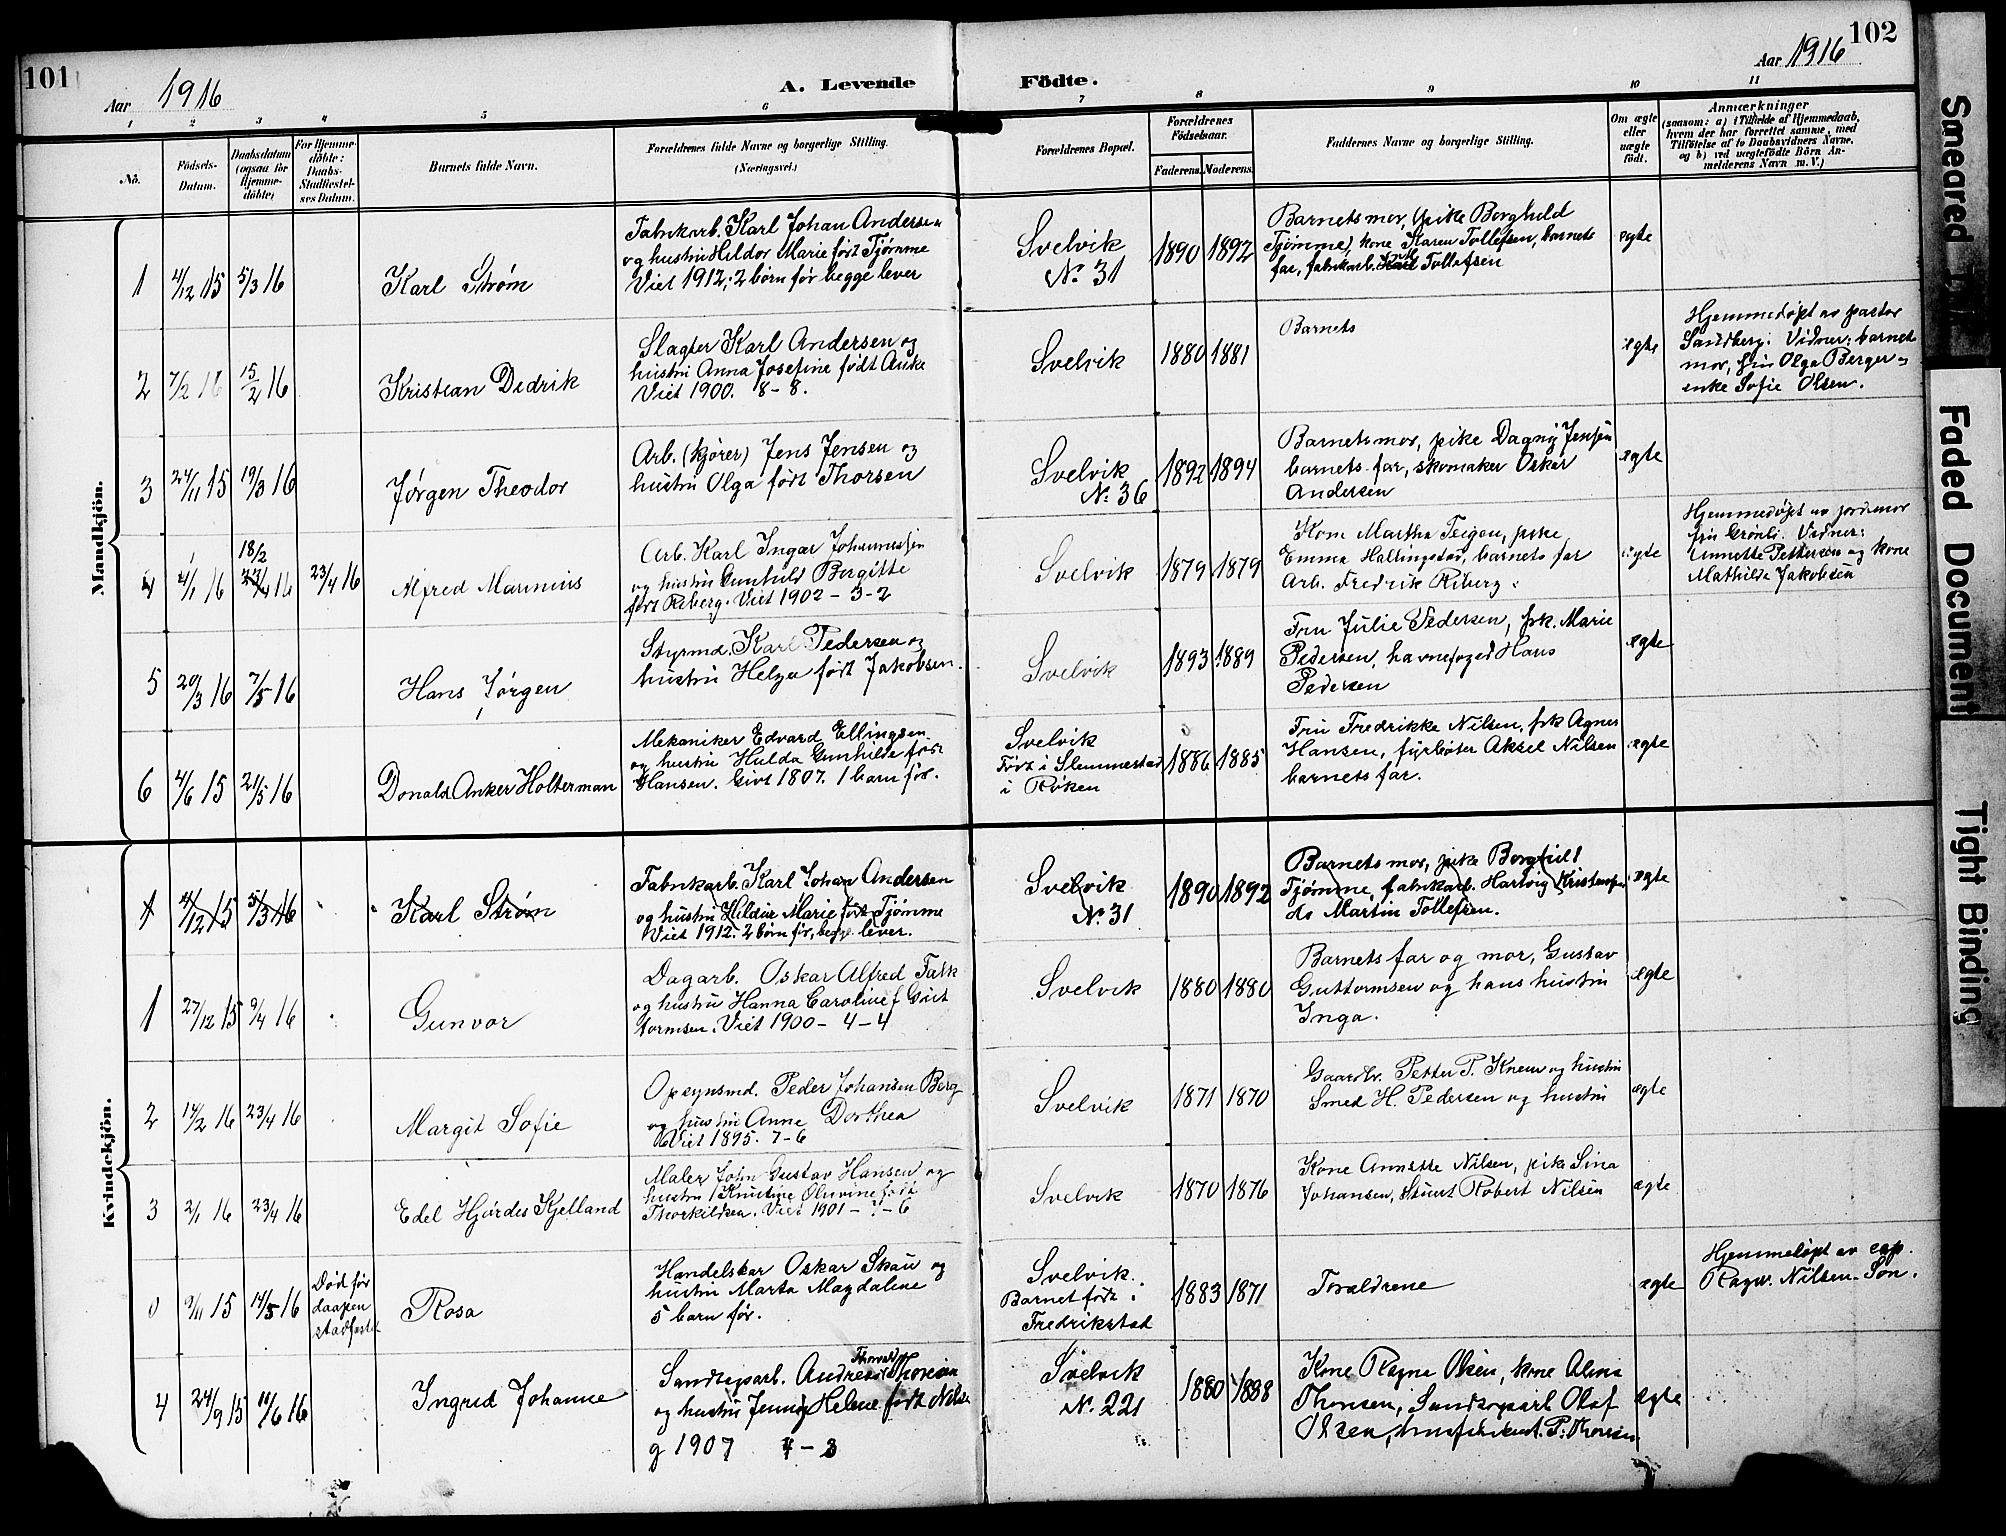 101
102
Aar 1916
A. Levende Födte.
Aar 1916
1 2 3 4 5 6 7 8 9 10 11
No.
Födsels-
Datum.
Daabsdatum
(ogsaa for
Hjemme-
döbte)
For Hjemme-
döbte:
Daabs-
Stadfæstel-
ses Datum.
Barnets fulde Navn.
Forældrenes fulde Navne og borgerlige Stilling.
(Næringsvei.)
Forældrenes Bopæl.
Forældrenes
Födselsaar.
Faderens. Moderens.
Faddernes Navne og borgerlige Stilling.
Om ægte
eller
uægte
födt.
Anmærkninger
(saasom: a) i Tilfælde af Hjemmedaab,
hvem der har forrettet samme, med
Tilföielse af to Daabsvidners Navne,
og b) ved uægtefödte Börn An-
melderens Navn m. V.)
Mandkjön.
1 4/12 15 5/3 16 Karl Strøm
Fabrikarb. Karl Johan Andersen
og hustru Hildur Marie født Tjømme
Viet 1912; 2 børn før begge lever
Svelvik
No. 31
1890 1892
Barnets mor, pike Borghild
Tjømme, kone Karen Tollefsen, barnets
far, fabrikarb. Tollefsen
ægte
2 7/2 16 15/2 16 Kristian Didrik
Slagter Karl Andersen og
hustru Anna Josefine født Anke
Viet 1900. 8-8.
Svelvik
1880 1881
Barnets
ægte
Hjemmedøpt av pastor
Sandberg. Vidner: barnets
mor, fru Olga Berger og
enke Sofie Olsen.
3 24/11 15 19/3 16 Jørgen Theodor
Arb. (kjører) Jens Jensen og
hustru Olga født Thorsen
Svelvik
No. 36
1892 1894
Barnets mor, pike Dagny Jensen
barnets far, skomaker Oskar
Andersen
ægte
4 4/1 16 18/2 16 23/4 16 Alfred Marinius
Arb. Karl Ingar Johannessen
og hustru Gunhild Birgitte
født Riberg. Viet 1902 - 3-2
Svelvik
1879 1879
Kone Martha Teigen, pike
Emma Hallingstad, barnets far
Arb. Fredrik Riberg.
ægte
Hjemmedøpt av jordmor
fru Grønli. Vidner:
Annette Pettersen og kone
Mathilde Jakobsen
5 20/3 16 7/5 16 Hans Jørgen
Styrmd. Karl Pedersen og
hustru Helga født Jakobsen.
Svelvik
1893 1889
Fru Julie Pedersen, frk. Marie
Pedersen, havnefoged Hans
Pedersen
ægte
6 4/6 15 21/5 16 Donald Anker Holterman
Mekaniker Edvard Ellingsen
og hustru Hulda Gunhilda født
Hansen. Givt 1807. 1 barn før.
Svelvik
Født i Slemmestad
i Røken
1886 1885
Fru Fredrikke Nilsen, frk Agnes
Hansen, fyrbøter Aksel Nilsen
barnets far.
ægte
Kvindekjön.
1 4/12 15 5/3 16 Karl Strøm
Fabrikarb. Karl Johan Andersen
og hustru Hildur Marie født Tjømme
Viet 1912. 2 børn før, begge lever.
Svelvik
No. 31
1890 1892
Barnets mor, pike Borghild
Tjømme, fabrikarb. Hartvig Kristensen
do Martin Tollefsen.
ægte
1 27/12 15 9/4 16 Gunvor
Dagarb. Oskar Alfred Falk
og hustru Hanna Caroline f Gut
tormsen. Viet 1900 - 4-4
Svelvik
1880 1880
Barnets far og mor, Gustav
Guttormsen og hans hustru
Inga.
ægte
2 14/2 16 23/4 16 Margit Sofie
Opsynsmd. Peder Johansen Berg
og hustru Anne Dorthea
Viet 1895. 7-6
Svelvik
1871 1870
Gaardbr. Petter P. Knem og hustru
Smed H. Pedersen og hustru
ægte
3 2/1 16 23/4 16 Edel Hjørdis Kjelland
Maler John Gustav Hansen og
hustru Kristine Oluvine født
Thorkildsen. Viet 1901 - 7-6
Svelvik
1870 1876
Kone Annette Nilsen, pike Sina
Johansen, Stuert Robert Nilsen
ægte
0 9/11 15 14/5 16
Død før
daapen
stadfæstet
Rosa
Handelskar Oskar Skau og
hustru Marta Magdalene
5 barn før.
Svelvik.
Barnet født i
Fredrikstad
1883 1871
Forældrene
ægte
Hjemmeløpt av cap.
Ragnv. Nilsen-Søn.
4 24/9 15 11/6 16 Ingrid Johanne
Thorvald
Sandtagsarb. Andreas Thorsen
og hustru Jenny Helene født Nilsen
g 1907 4-3
Svelvik
No. 221
1880 1888
Kone Ragna Olsen, kone Alma
Thorsen, Sandtagsarb Olaf
Olsen, P. Thorsen
ægte
Smeared
Faded Document
Tight Binding